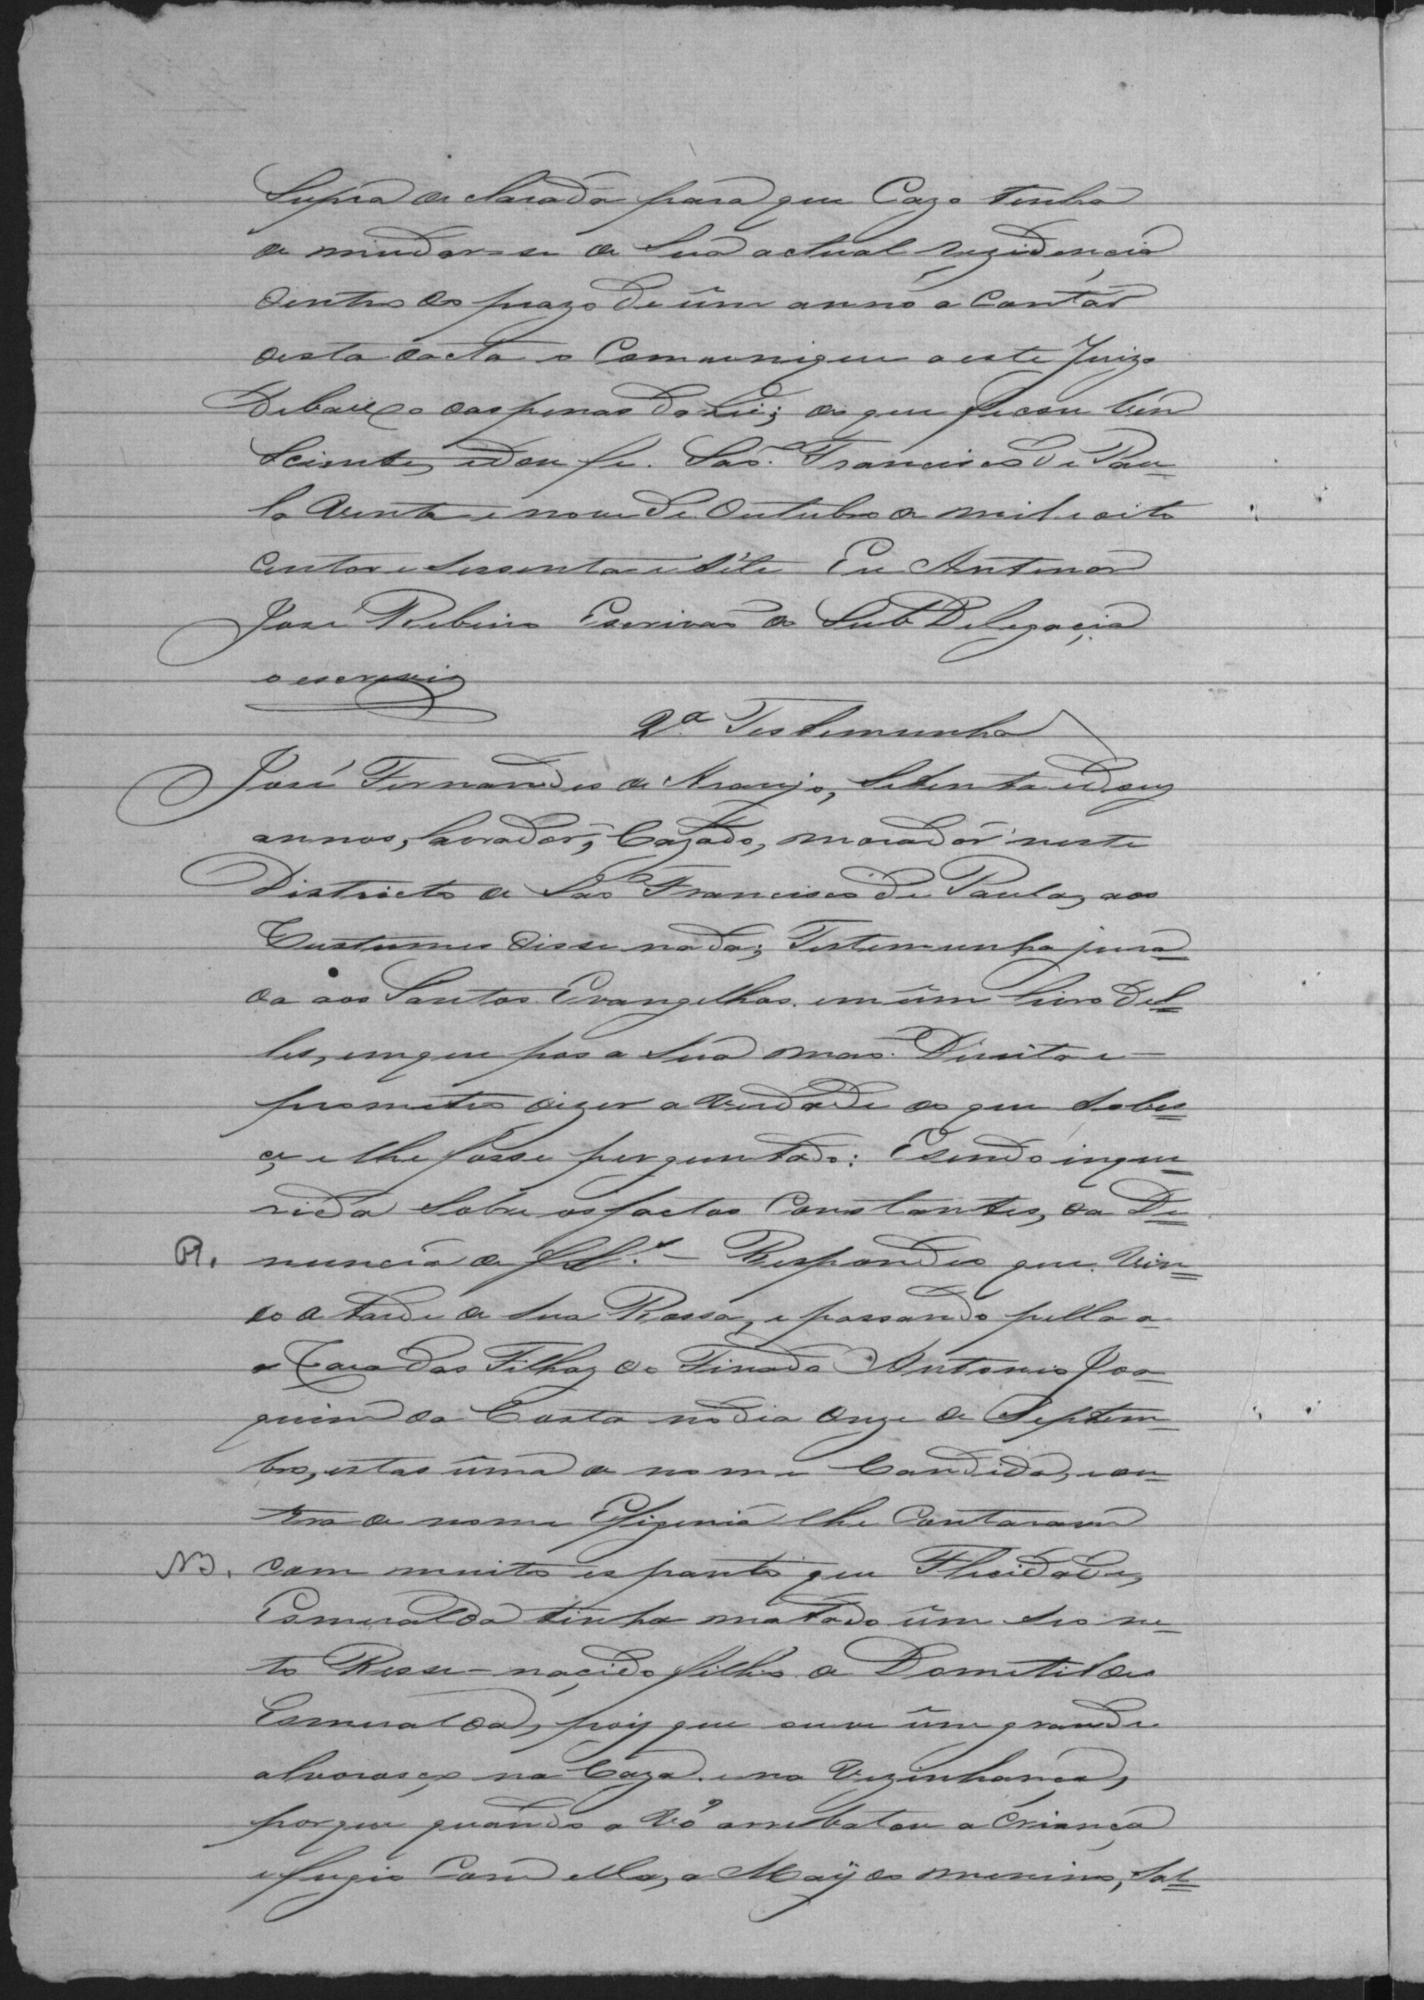 Supra declarada para que Cazo tenha
de mudar-se de sua actual rezidencia
dentro do prazo de um anno a Contar
desta dacta o Communique a este Juizo
Debaixo das penas da Lei; do que ficou bem
Sciente, e dou fe. São Francisco de Pau=
la vinte e nove de Outubro de mil e oito
centos e sessenta e séte Eu Antenor
José Ribeiro Escrivão da Sub Delegacia
o escrevi
2ª Testemunha
José Fernandes de Araujo, Setenta e dous
annos, lavrador, Cazado, morador neste
Districto de São Francisco de Paula, aos
Custumes disse nada; Testemunha jura=
da aos Santos Evangelhos em um livro del=
les, em que pos a sua mão Direita e
prometeo dizer a verdade do que sobes=
se e lhe fosse perguntado: E sendo inque=
rida sobre os factos Constantes, da De=
R. nuncia de fl. Respondeo que vin=
do a tarde de sua Rossa, e passando pella a
a Caza das Filhas do Finado Antonio Joa=
quim da Costa no dia onze de Septem=
bro, estas uma de nome Candida, e ou=
tra de nome Efigenia lhe Contaram
NB. com muito espanto que Flicidade,
Esmeralda tinha matado um seo ne=
to Resse-nacido filho de Dometildes
Esmeralda, pois que ouve um grande
alvorosço na Caza e na Vezinhança,
porque quando a Vó arrebatou a Criança
e fugio Com ella, a Maÿ do menino, sal=